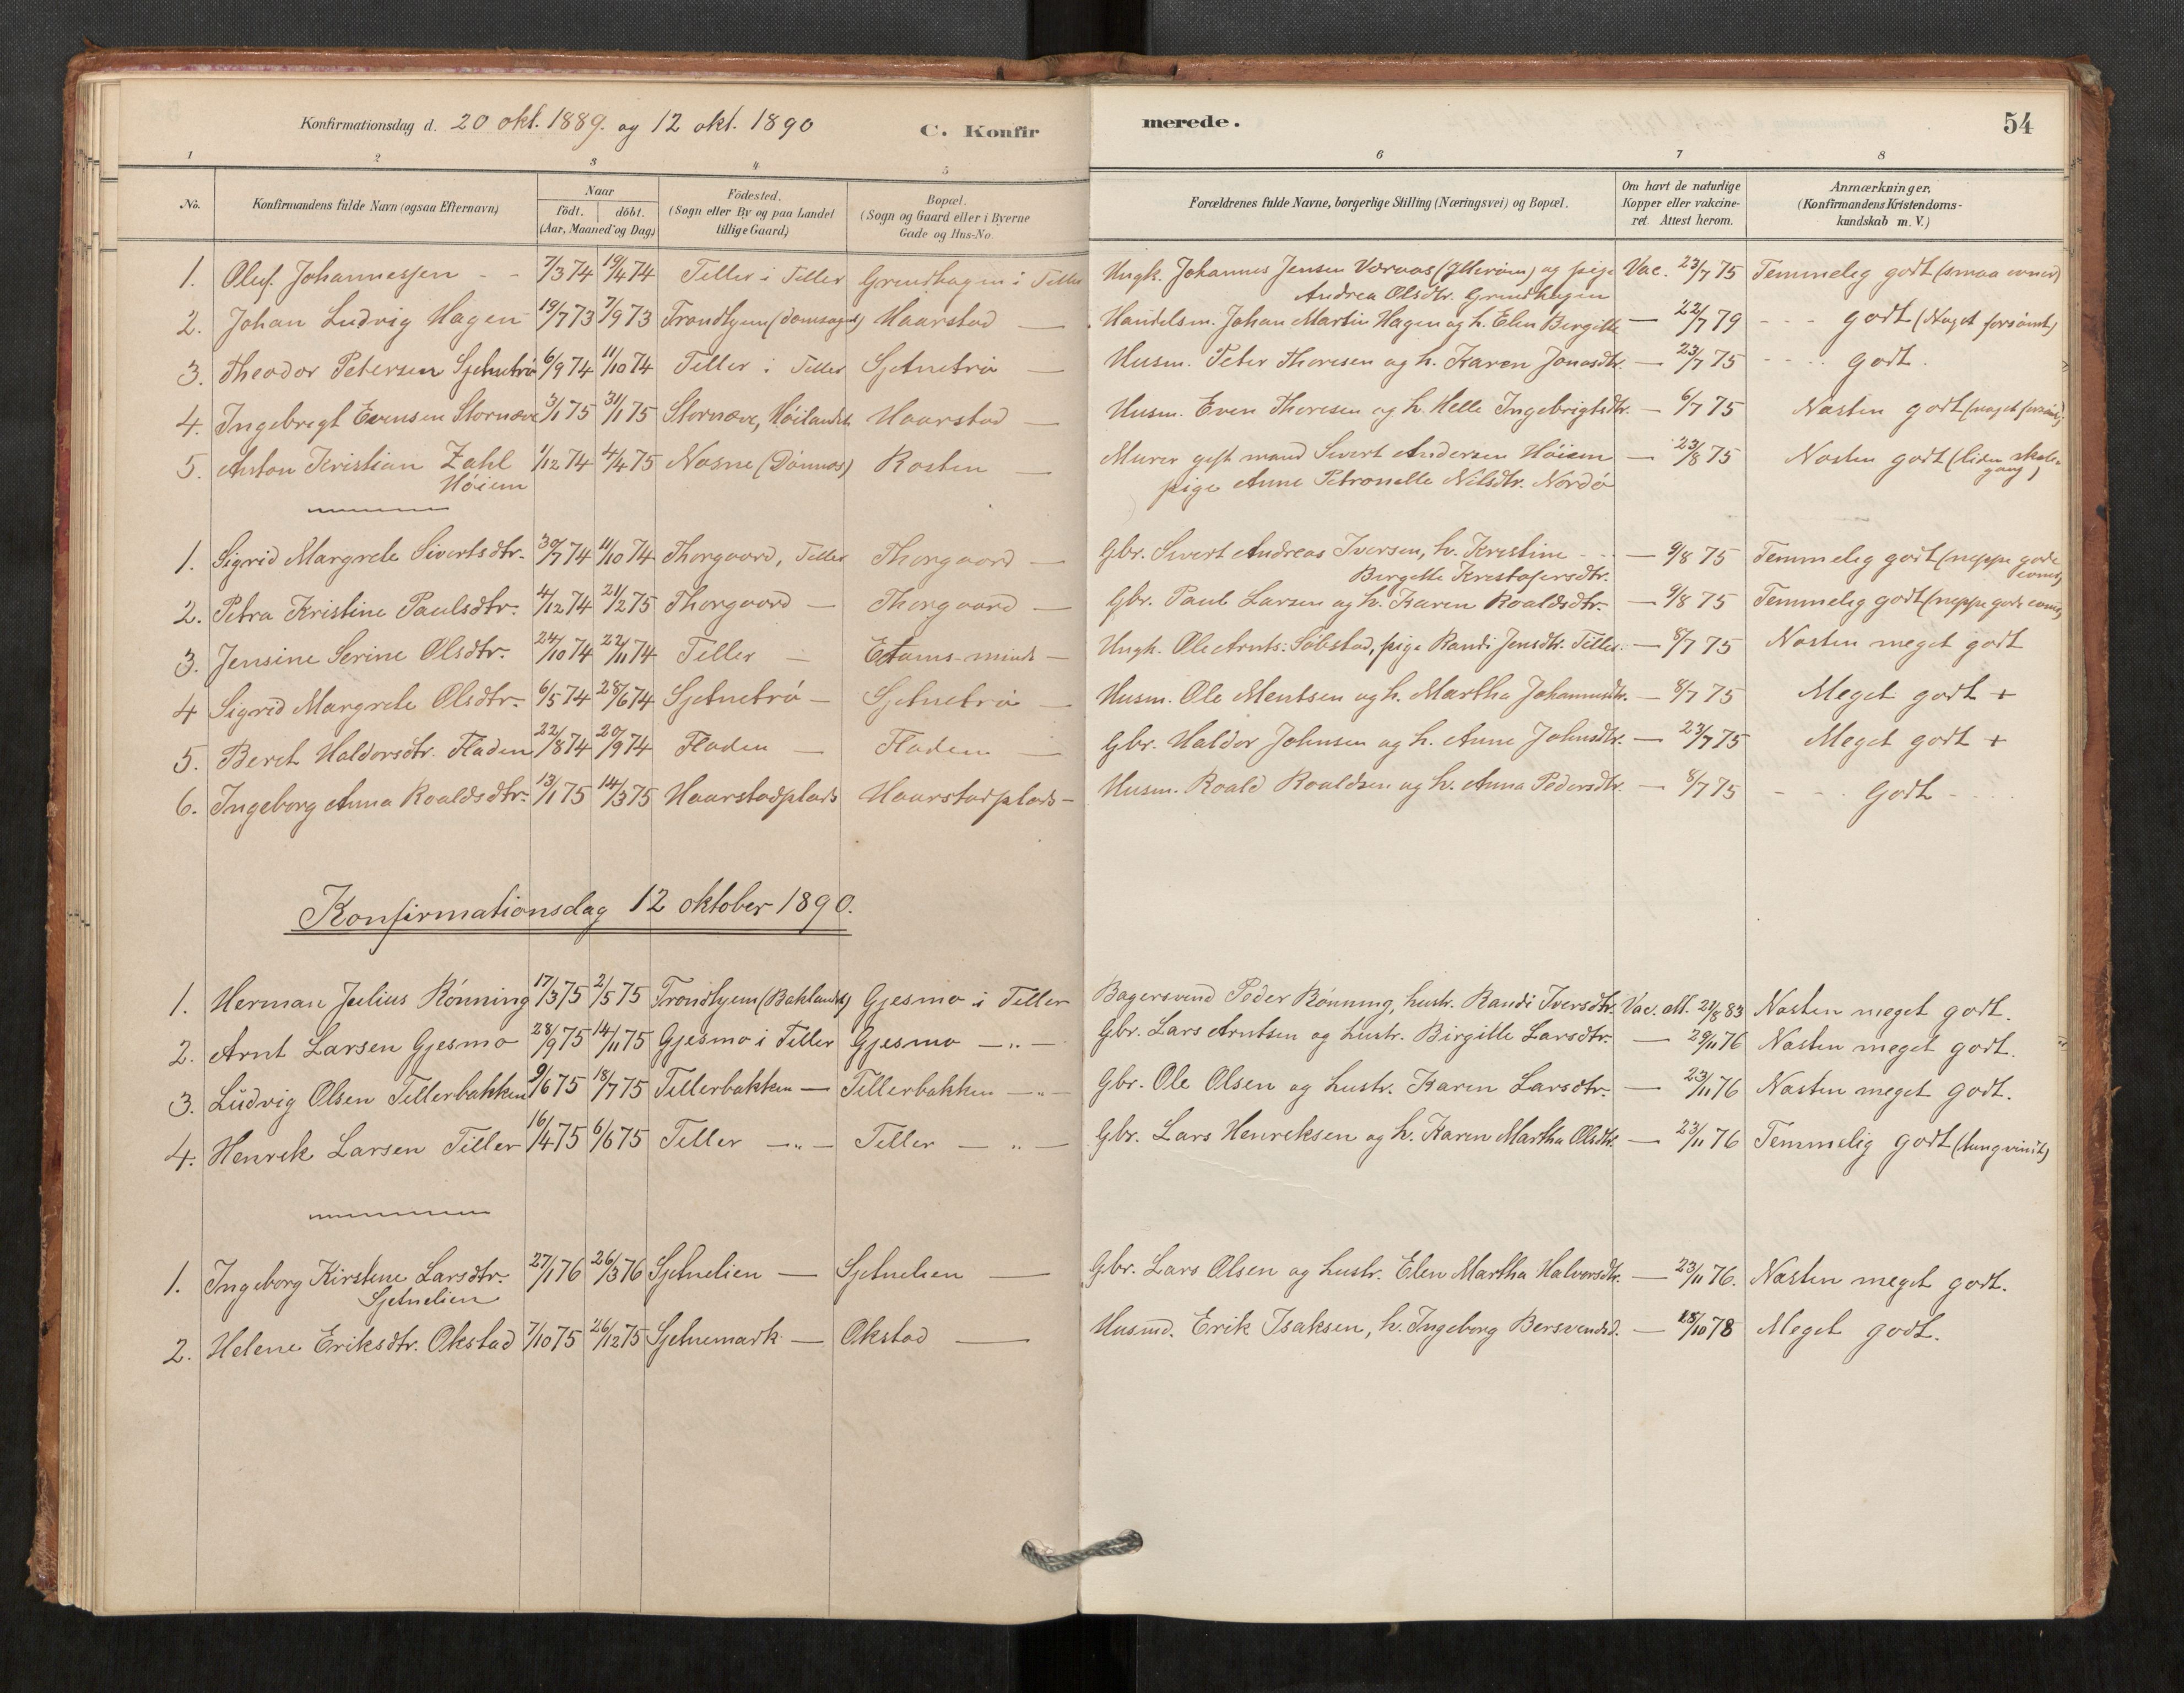 Konfirmationsdag d. 20 okt. 1889. og 12 okt. 1890 C. Konfirmerede. 54
1 2 3 4 5 6 7 8
No. Konfirmandens fulde Navn (ogsaa Efternavn) Naar födt. döbt. (Aar, Maaned og Dag) Födested. (Sogn eller By og paa Landet tillige Gaard) Bopæl. (Sogn og Gaard eller i Byerne Gade og Hus-No. Forældrenes fulde Navne, borgerlige Stilling (Næringsvei) og Bopæl. Om havt de naturlige Kopper eller vakcineret. Attest herom. Anmærkninger. (Konfirmandens Kristendomskundskab m. V.)
1. Oluf Johannessen - - 7/3 74 19/4 74 Tiller i Tiller Grendhagen i Tiller Ungk. Johannes Jensen Værnas (Ytterøen) og pige Vac. 23/7 75 Temmelig godt (smaa evner)
Andrea Olsdtr. Grendhagen
2. Johan Ludvig Hagen 19/7 73 7/9 73 Trondhjem (Domsognet) Haarstad — Handelsm. Johan Martin Hagen og h. Elen Bergitte — 22/7 79 - - - godt (Noget forsömt)
3. Theodor Petersen Sjetnetrö 6/9 74 11/10 74 Tiller i Tiller Sjetnetrö — Husm. Peter Thoresen og h. Karen Jonasdtr. — 23/7 75 - - - godt.
4. Ingebrigt Evensen Stornæve 3/1 75 31/1 75 Stornæve, Höilandet Haarstad — Husm. Even Thoresen og h. Helle Ingebrigtsdtr. — 6/7 75 Næsten godt (noget forsömt)
5. Anton Kristian Zahl 1/12 74 4/4 75 Næsne (Dönnæs) Rosten — Murer gift mand Sivert Andersen Höiem — 23/8 75 Næsten godt (liden skolegang)
Höiem pige Anne Petronelle Nilsdtr. Nordö
1. Sigrid Margrete Sivertsdtr. 30/7 74 11/10 74 Thorgaard, Tiller Thorgaard — Gbr. Sivert Andreas Iversen, h. Kristine - - — 9/8 75 Temmelig godt (neppe gode evner)
Bergitte Kristofersdtr.
2. Petra Kristine Paulsdtr. 4/12 74 21/2 75 Thorgaard — Thorgaard — Gbr. Paul Larsen og h. Karen Roaldsdtr. — 9/8 75 Temmelig godt (neppe gode evner)
3. Jensine Serine Olsdtr. 24/10 74 22/11 74 Tiller — Etams-minde — Ungk. Ole Arnts: Söbstad, pige Randi Jensdtr. Tiller. — 8/7 75 Næsten meget godt
4 Sigrid Margrete Olsdtr. 6/5 74 28/6 74 Sjetnetrö — Sjetnetrö — Husm. Ole Mentsen og h. Martha Johannesdtr. — 8/7 75 Meget godt +
5. Beret Haldorsdtr. Fladen 22/8 74 20/9 74 Fladen — Fladen — Gbr. Haldor Johnsen og h. Anne Johnsdtr. — 23/7 75 Meget godt +
6. Ingeborg Anna Roaldsdtr. 13/1 75 14/3 75 Haarstadplads Haarstadplads — Husm. Roald Roaldsen og h. Anna Pedersdtr. — 8/7 75 - - - Godt - - -
Konfirmationsdag 12 oktober 1890.
1. Herman Julius Rönning 17/3 75 2/5 75 Trondhjem (Baklandet) Gjesmo i Tiller Bagersvend Peder Rönning, hustr. Randi Iversdtr. Vac. att. 21/8 83 Næsten meget godt.
2. Arnt Larsen Gjesmo 28/9 75 14/11 75 Gjesmo i Tiller Gjesmo —„— Gbr. Lars Arntsen og hustr. Birgitte Larsdtr. — 29/11 76 Næsten meget godt.
3. Ludvig Olsen Tillerbakken 9/6 75 18/7 75 Tillerbakken — Tillerbakken —„— Gbr. Ole Olsen og hustr. Karen Larsdtr. — 23/11 76 Næsten meget godt.
4. Henrik Larsen Tiller 16/4 75 6/6 75 Tiller —„— Tiller —„— Gbr. Lars Henriksen og h. Karen Martha Olsdtr. — 23/11 76 Temmelig godt (tungvindt)
1. Ingeborg Kirstine Larsdtr. 27/1 76 26/3 76 Sjetnelien — Sjetnelien — Gbr. Lars Olsen og hustr. Elen Martha Halvorsdtr. — 23/11 76. Næsten meget godt.
Sjetnelien
2. Helene Eriksdtr. Okstad 7/10 75 26/12 75 Sjetnemark — Okstad — Husmd. Erik Isaksen, h. Ingeborg Bersvendsd. — 18/10 78 Meget godt.